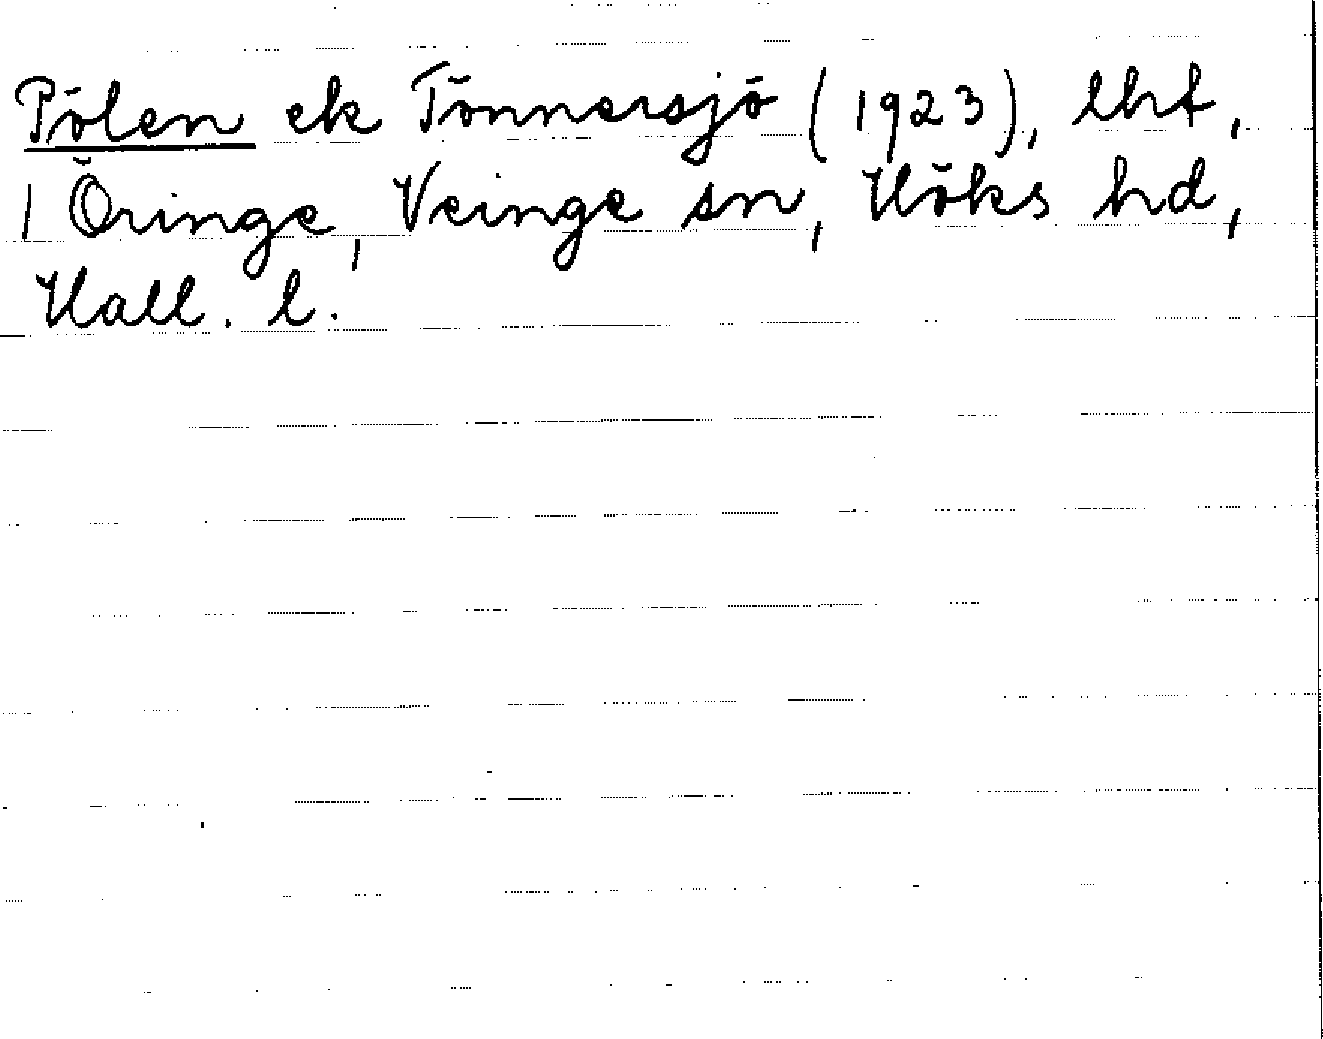 Pölen ek Tönnersjö (1923), lht,
1 Öringe, Veinge sn, Höks hd,
Hall. l.